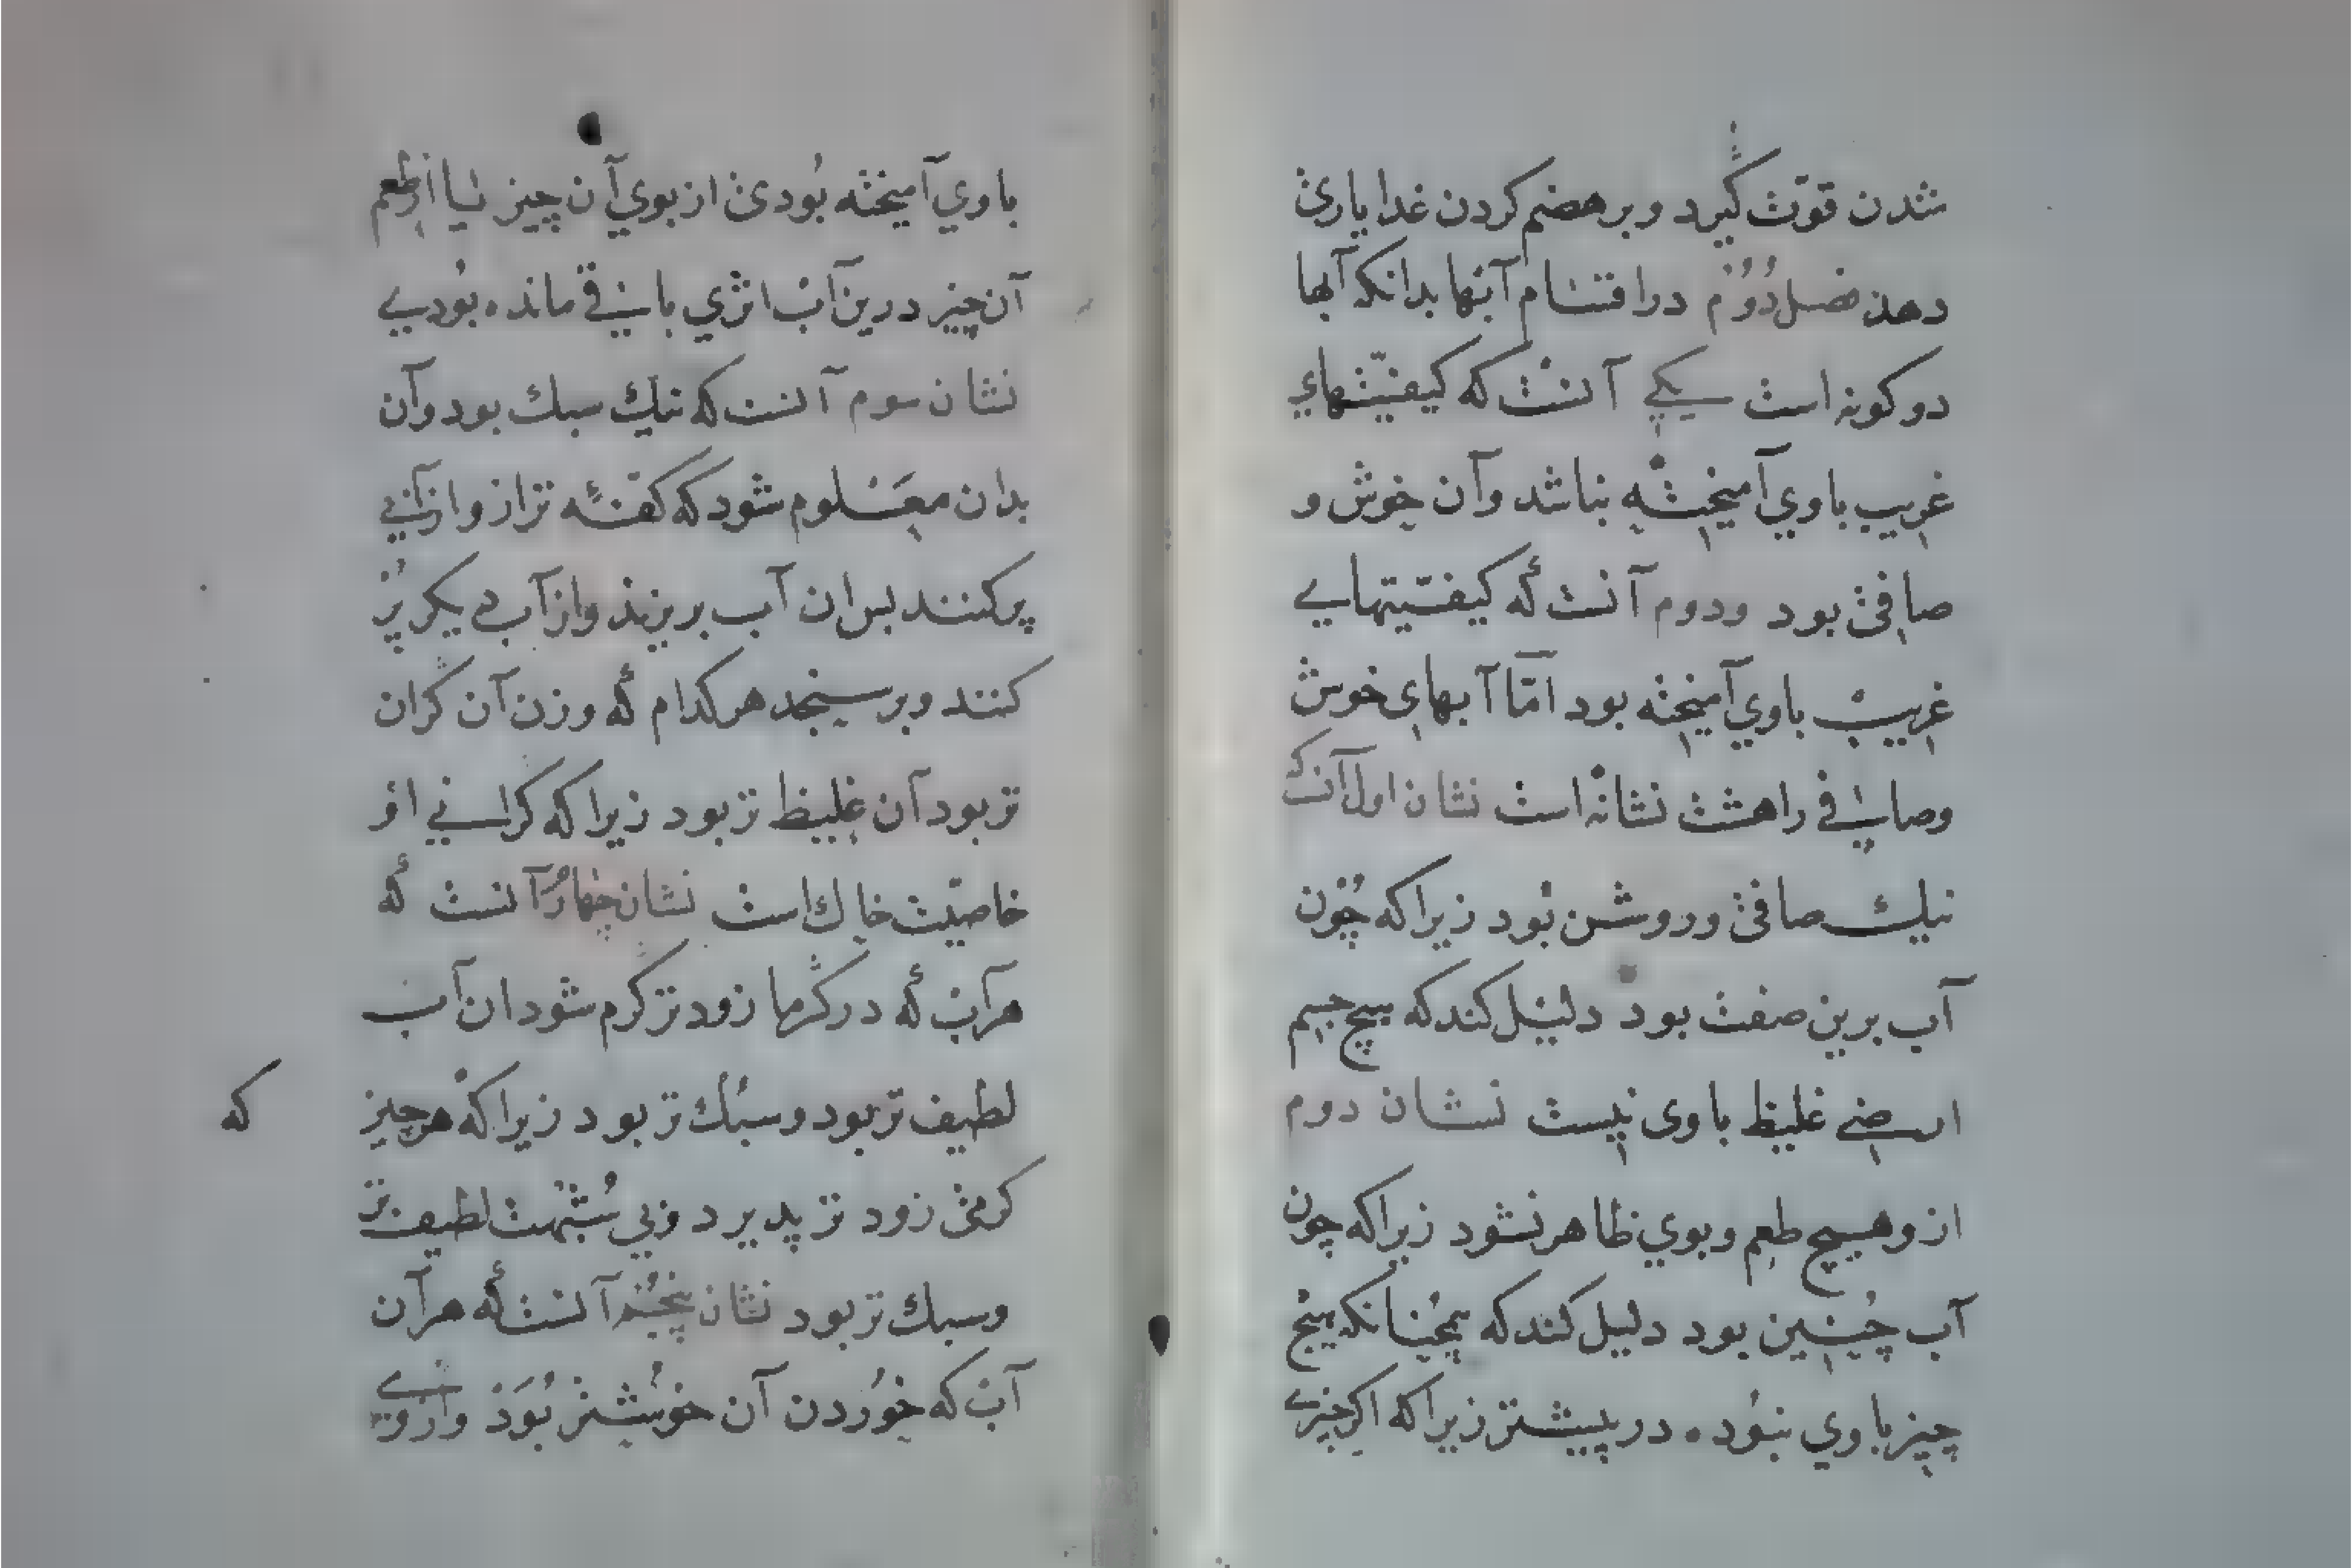 شدن قوّت گیرد و بر هضم کردن غدا یاری
دهذ فصل دُوُم در اقتسام آبها بدانکه آبها
دو کونه است یکی آنست که کیفیّتهاي
غریب با وي آمیخته نباشد وآن خوش و
صافی بود ودوم آنست که کیفیّتهایے
غریب با وي آمیخته بود امّا آبهاي خوش
وصافی را هشت نشانه است نشان اول آنست که
نیك صافی و روشن بُود زیرا که چُون
آب برین صفت بود دلیل کند که هیچ جسم
ارضی غلیظ با وی نیست نشان دوم
از و هیچ طعم و بوي ظاهر نشود زیرا که چون
آب چُنین بود دلیل کند که همچنانکه هیچ
چیز با وي نبُوده در پیشتر زیرا که اکر چیزے
با وي آمیخته بُودی از بوي آن چیز یا از طعم
آن چیز درین آب اثری باقی مانده بُودیے
نشان سوم آنست که نیك سبك بود وآن
بدان معَلوم شود که کفّهٔ ترازو از آبی
پر کنند بس ان آب بریزند واز آب دیکر پُر
کنند وبر سنجد هر کدام که وزن آن کران
تر بود آن غلیظ تر بود زیرا که کرانی او
خاصیّت خاك است نشان چهارُم آنست که
هر آب که در گرما زود تر کرم شود ان آب
لطیف تر بود و سبُك تر بود زیرا که هر چیز
که
کرمی زود تر پدیرد و بی شبُهت لطیف تر
وسبك تر بود نشان پنجُم آنست که هر آن
آب که خوُردن آن خوُشتر بُوَد و ارزوے